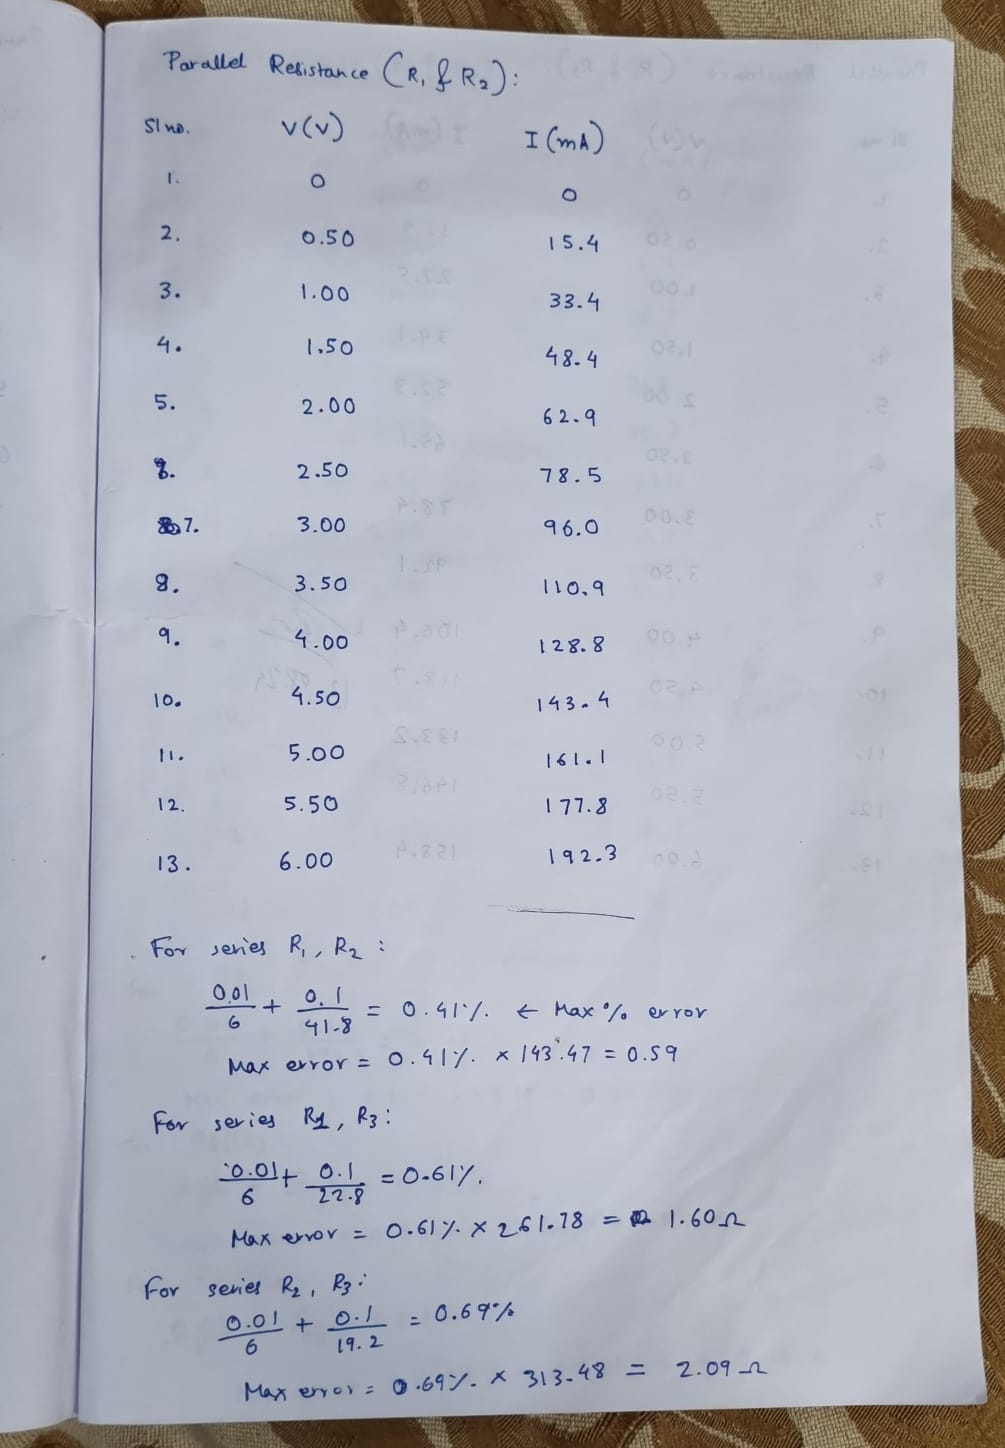 Parallel Resistance (R₁ & R₂):
Sl no. V(V) I(mA)
1. 0 0
2. 0.50 15.4
3. 1.00 33.4
4. 1.50 48.4
5. 2.00 62.9
2.50 78.5
7. 3.00 96.0
8. 3.50 110.9
9. 4.00 128.8
10. 4.50 143.4
11. 5.00 161.1
12. 5.50 177.8
13. 6.00 192.3
For series R₁, R₂ :
0.01/6 + 0.1/41.8 = 0.41%. ← Max % error
Max error = 0.41%. × 143.47 = 0.59
For series R₁, R₃:
0.01/6 + 0.1/22.8 = 0.61%.
Max error = 0.61%. × 261.78 = 1.60Ω
For series R₂, R₃:
0.01/6 + 0.1/19.2 = 0.69%
Max error = 0.69%. × 313.48 = 2.09Ω